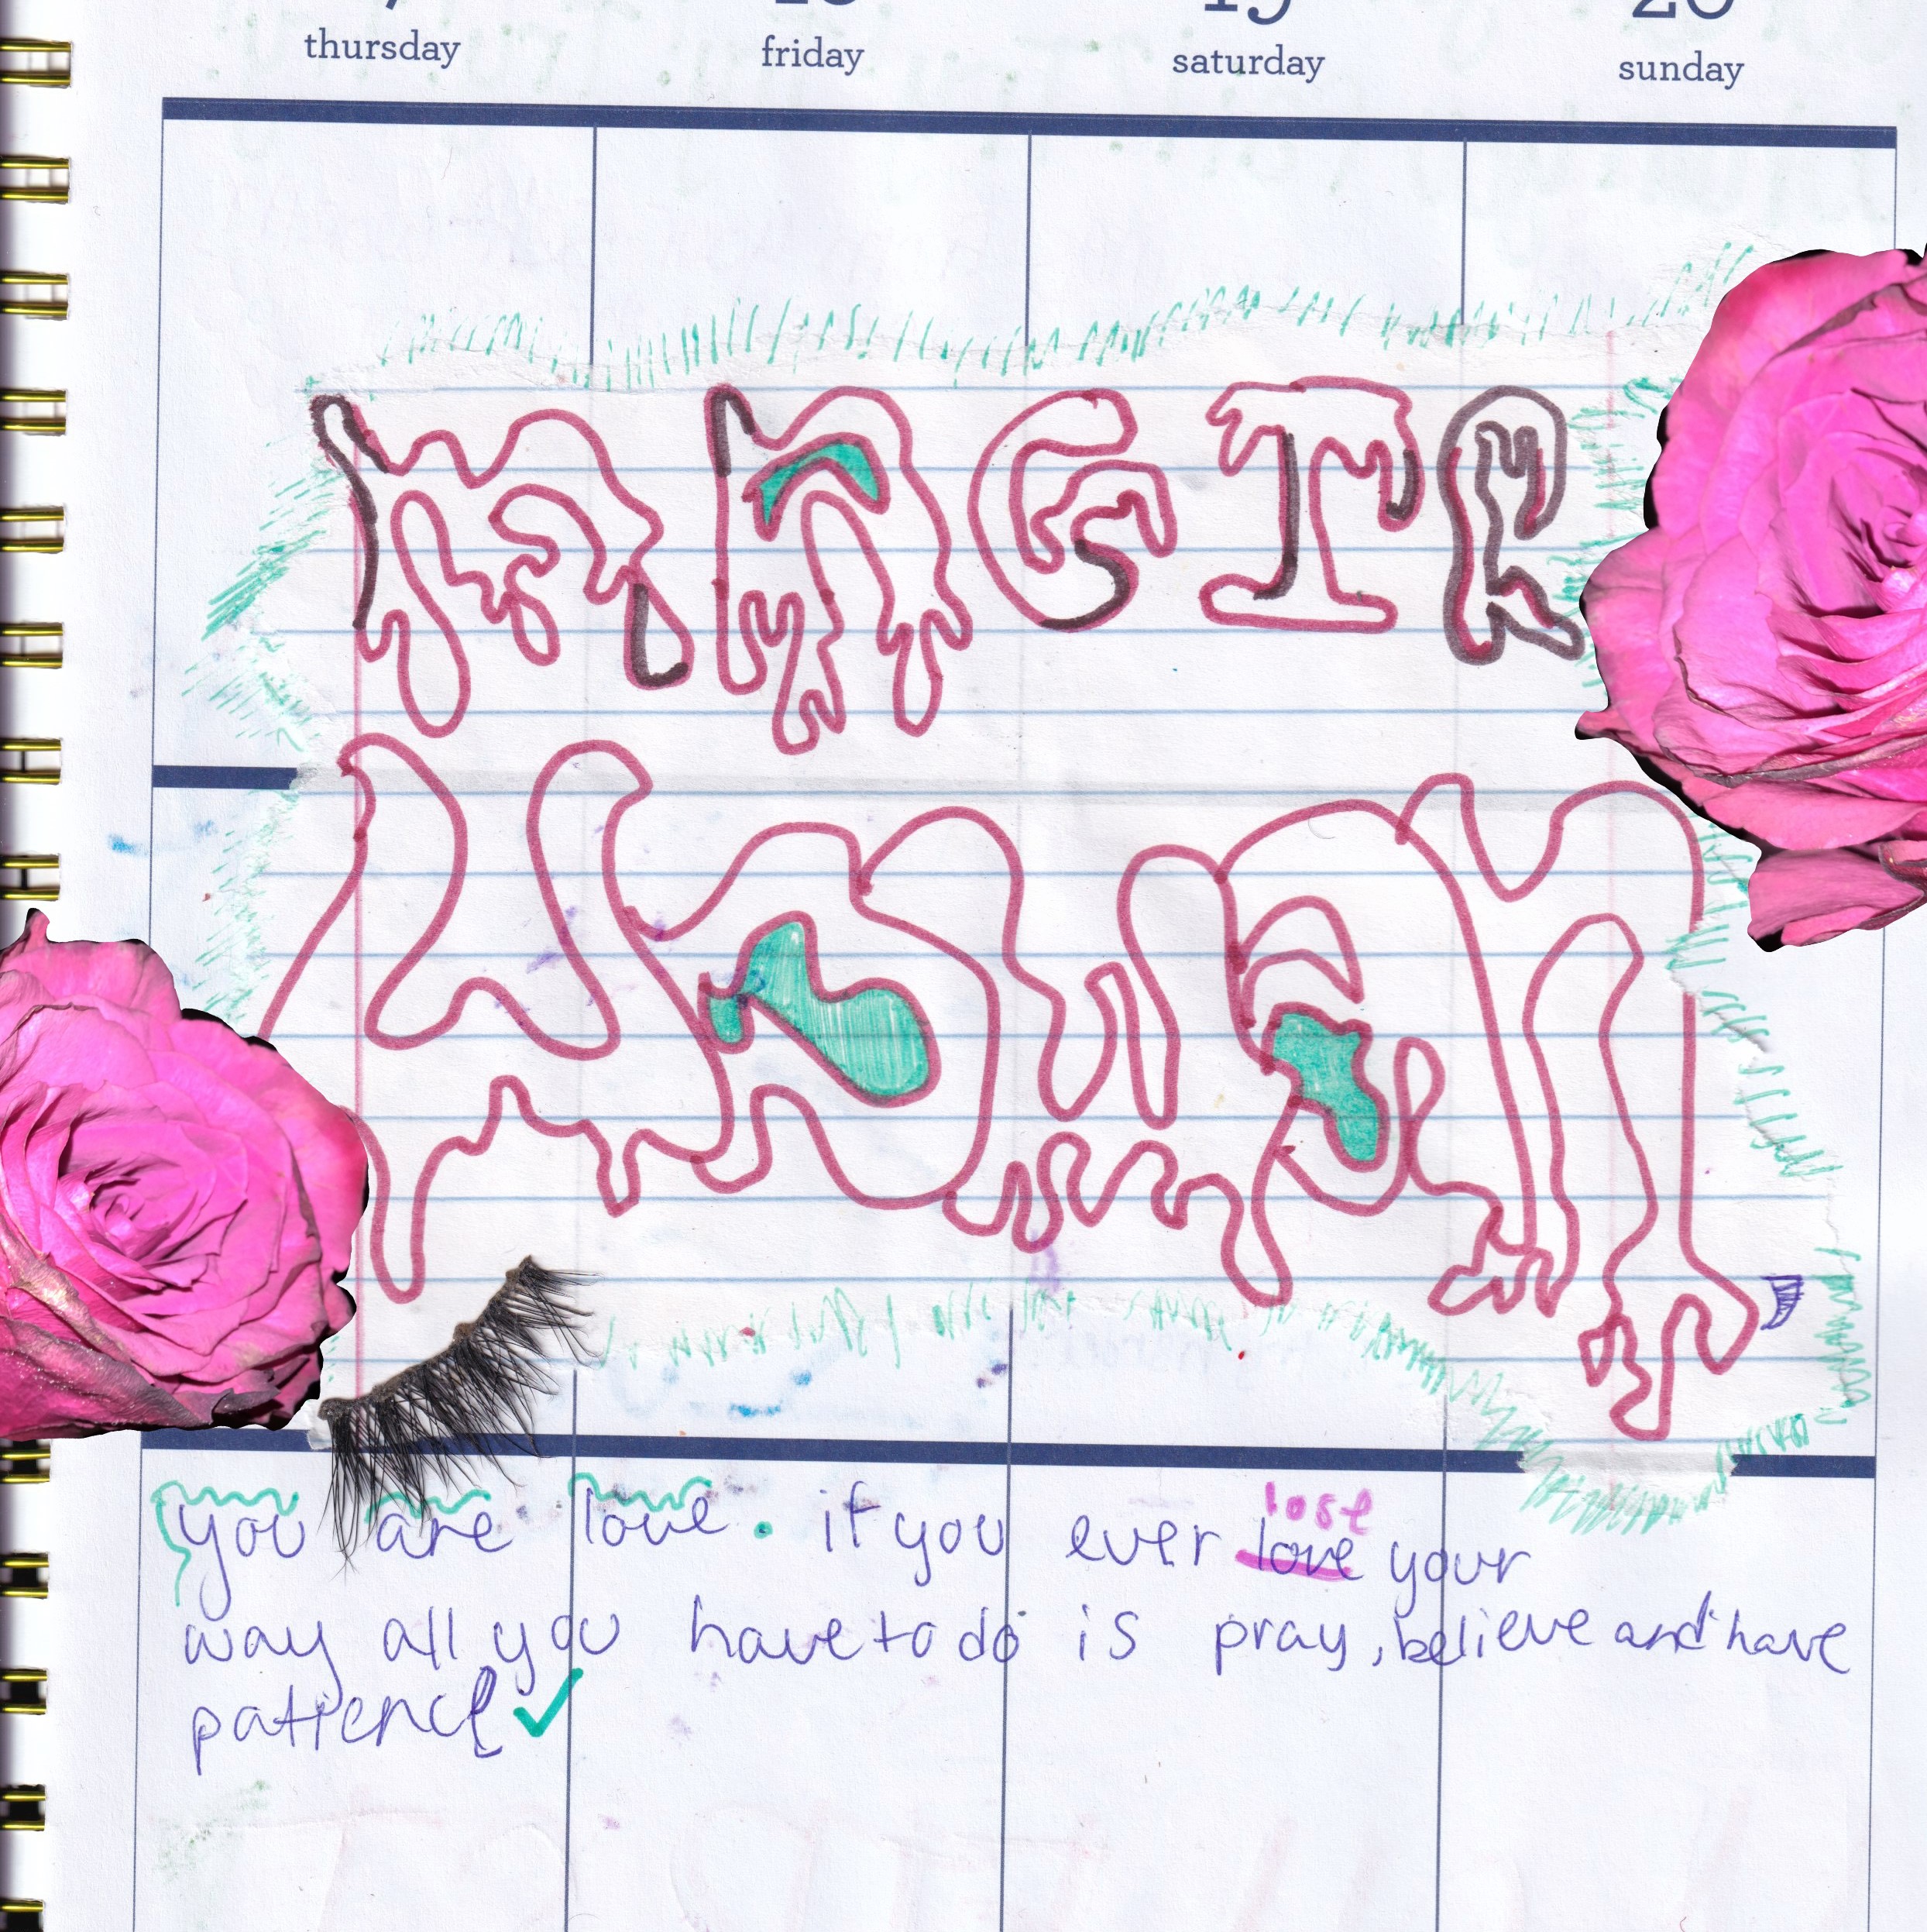 thursday friday saturday sunday
MAGIC
WOMAN
lose
you are love. if you ever love your
way all you have to do is pray, believe and have
patience